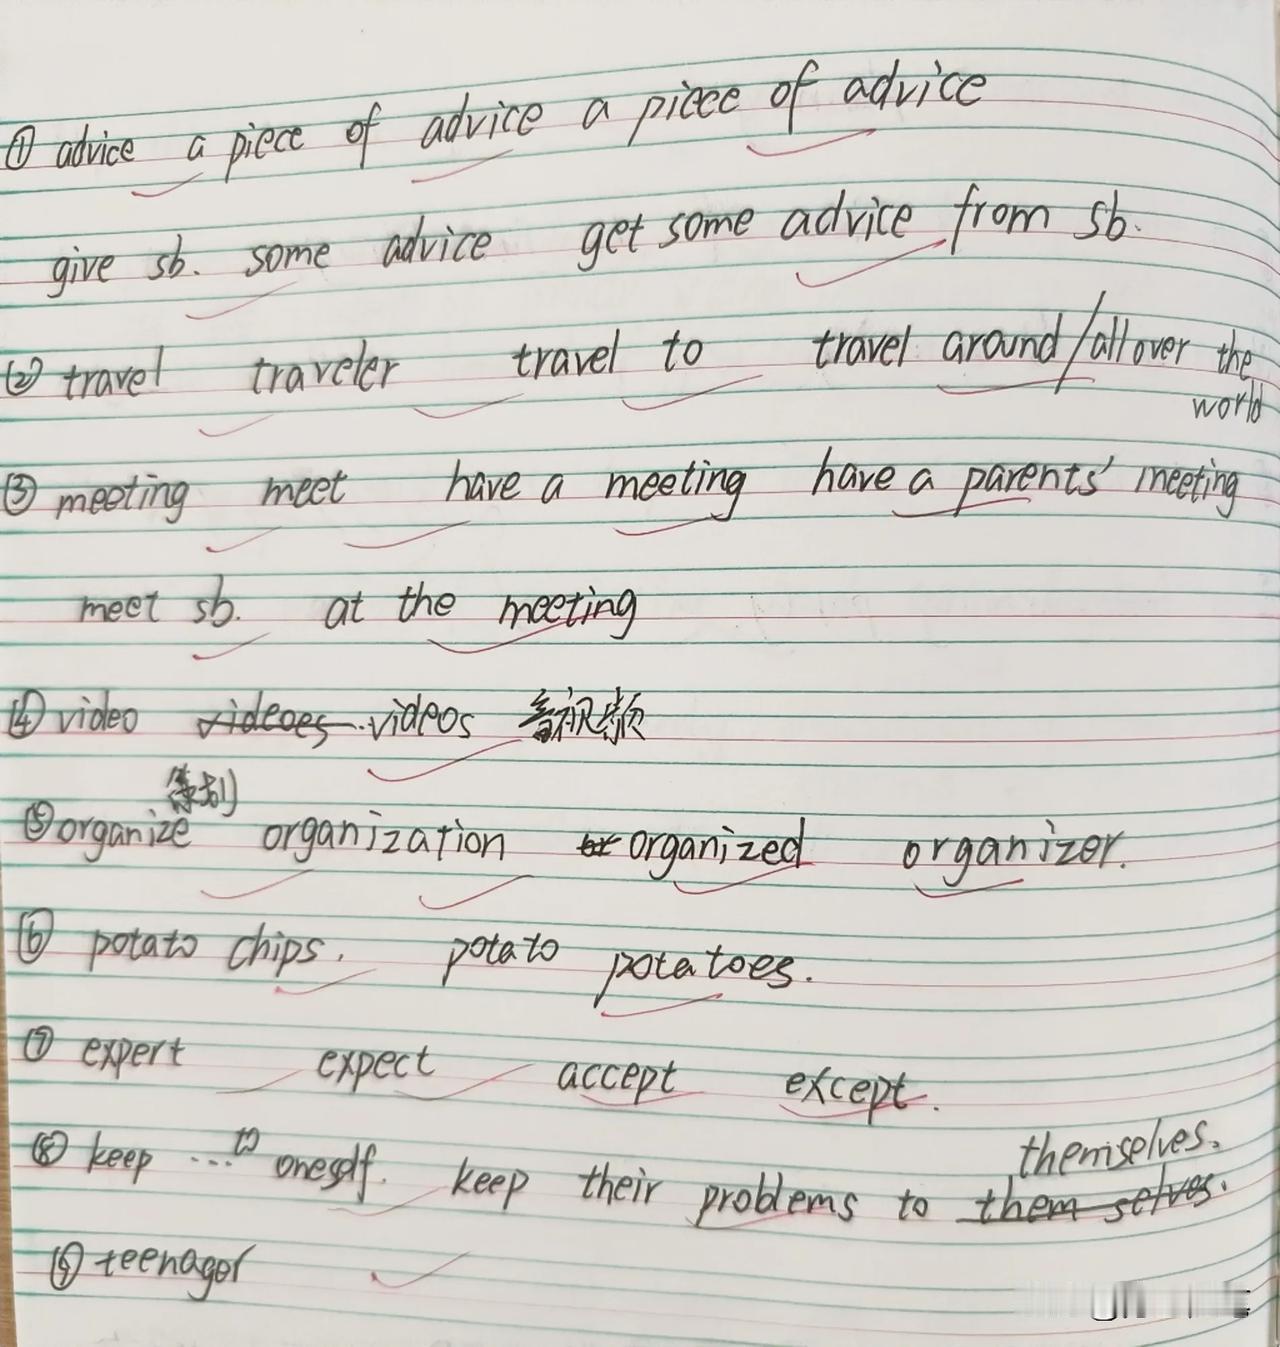 ① advice a piece of advice a piece of advice
give sb. some advice get some advice from sb.
② travel traveler travel to travel around/all over the
world
③ meeting meet have a meeting have a parents' meeting
meet sb. at the meeting
④ video videoes videos 音视频
策划
⑤ organize organization or organized organizer.
⑥ potato chips. potato potatoes.
⑦ expert expect accept except.
themselves.
⑧ keep ...to oneself. keep their problems to them selves.
⑨ teenager